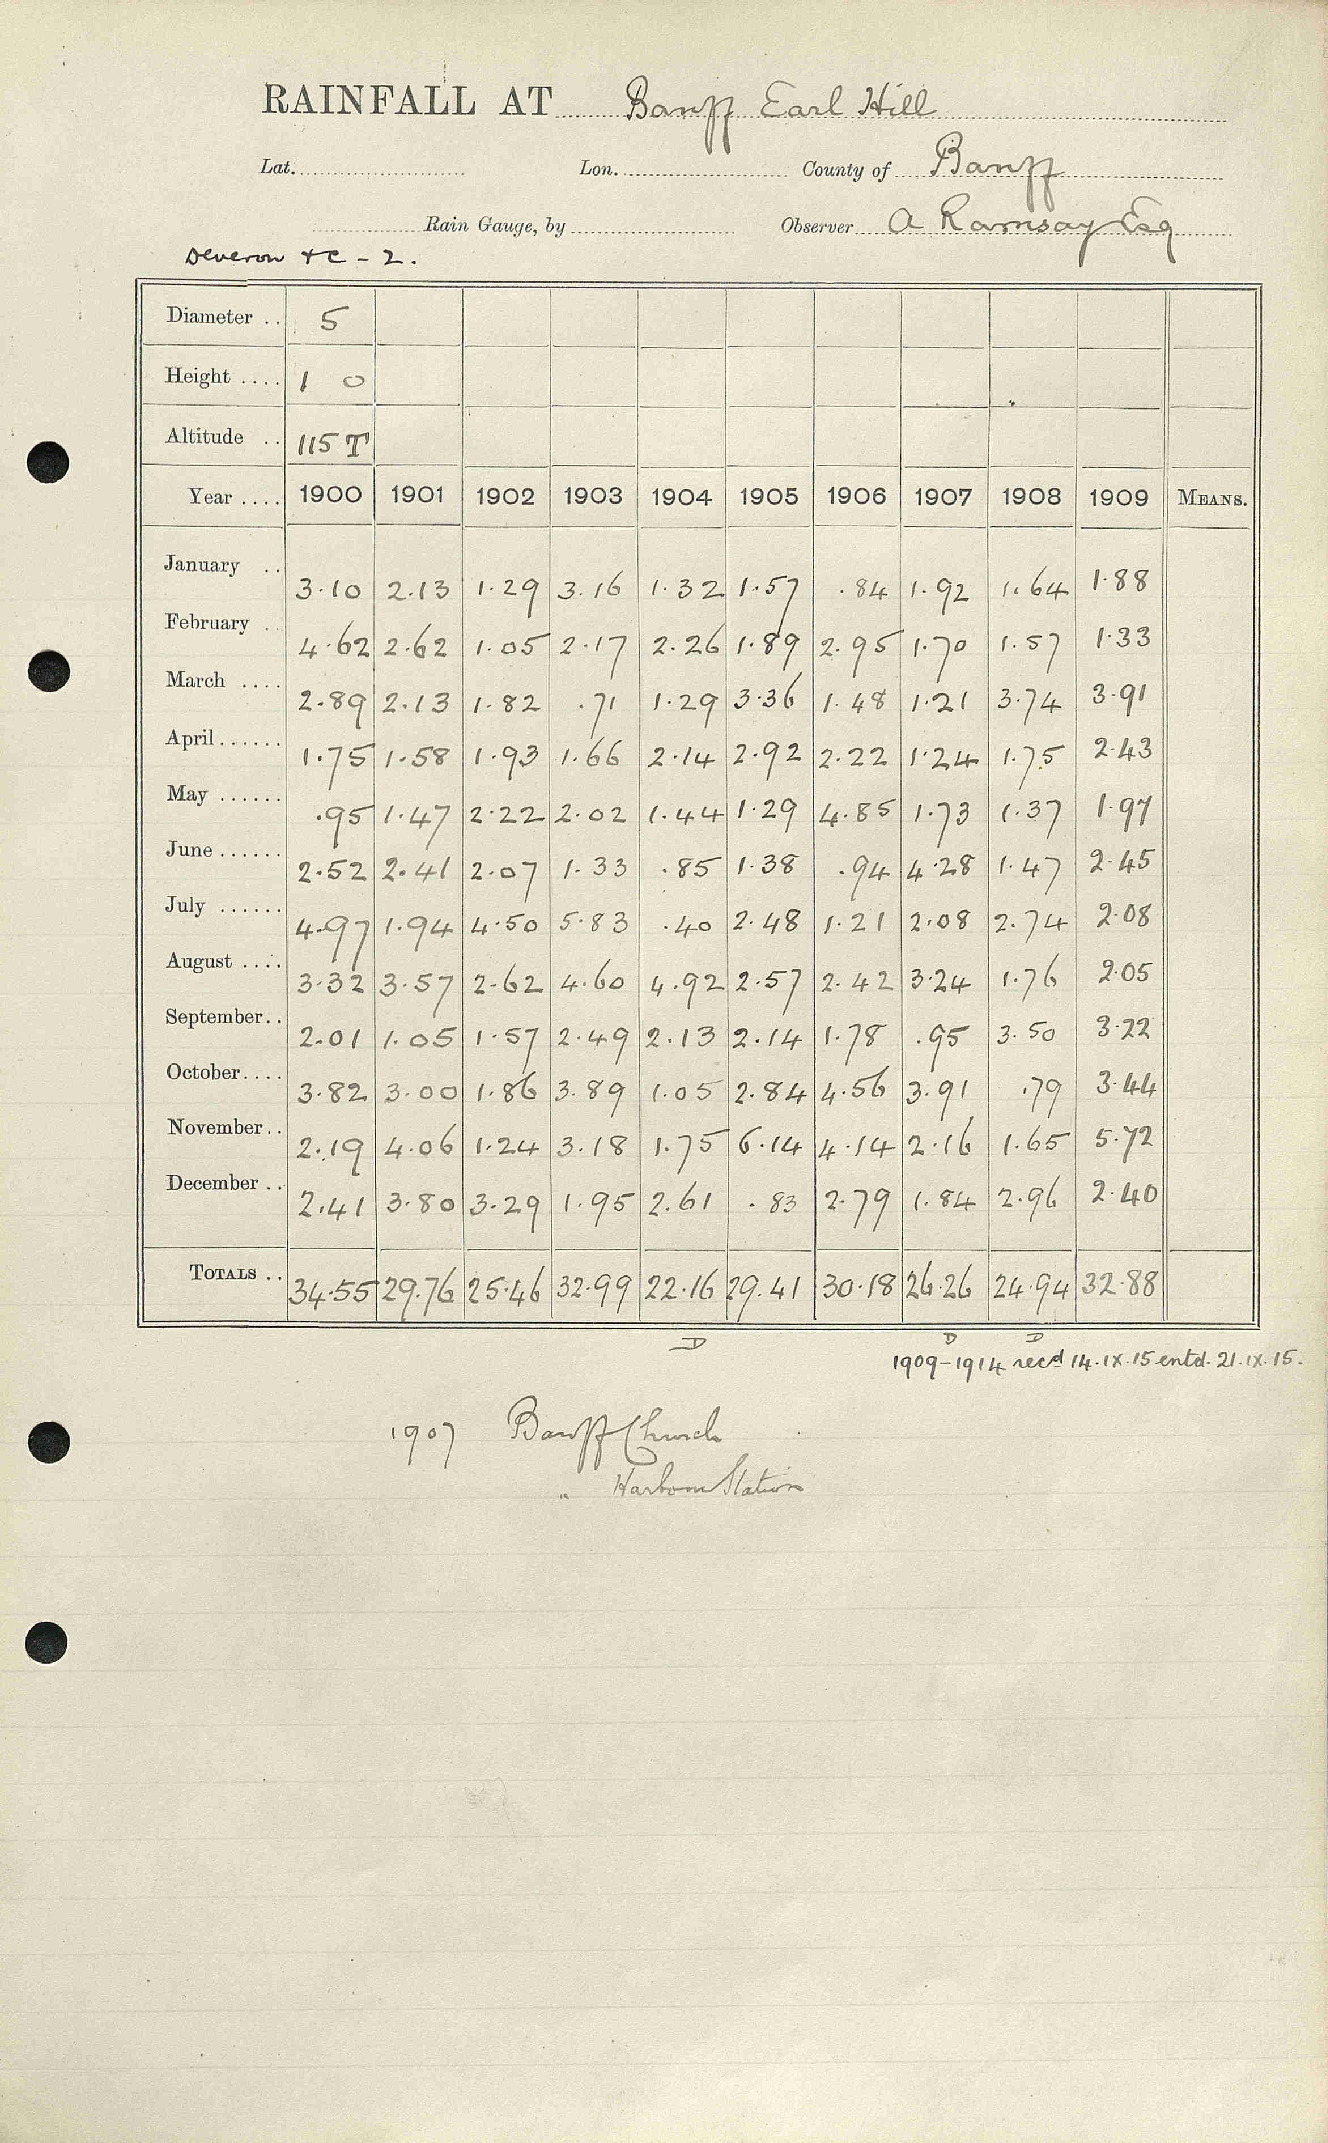 RAINFALL AT Banff Earl Hill
Lat. Lon. County of Banff
Rain Gauge, by Observer A Ramsay Esq
Deveron &c - 2.
Diameter .. 5
Height .... 1 0
Altitude .. 115 T
Year .... 1900 1901 1902 1903 1904 1905 1906 1907 1908 1909 MEANS.
January .. 3.10 2.13 1.29 3.16 1.32 1.57 .84 1.92 1.64 1.88
February .. 4.62 2.62 1.05 2.17 2.26 1.89 2.95 1.70 1.57 1.33
March .... 2.89 2.13 1.82 .71 1.29 3.36 1.48 1.21 3.74 3.91
April...... 1.75 1.58 1.93 1.66 2.14 2.92 2.22 1.24 1.75 2.43
May ...... .95 1.47 2.22 2.02 1.44 1.29 4.85 1.73 1.37 1.97
June ...... 2.52 2.41 2.07 1.33 .85 1.38 .94 4.28 1.47 2.45
July ...... 4.97 1.94 4.50 5.83 .40 2.48 1.21 2.08 2.74 2.08
August .... 3.32 3.57 2.62 4.60 4.92 2.57 2.42 3.24 1.76 2.05
September.. 2.01 1.05 1.57 2.49 2.13 2.14 1.78 .95 3.50 3.22
October.... 3.82 3.00 1.86 3.89 1.05 2.84 4.56 3.91 .79 3.44
November.. 2.19 4.06 1.24 3.18 1.75 6.14 4.14 2.16 1.65 5.72
December .. 2.41 3.80 3.29 1.95 2.61 .83 2.79 1.84 2.96 2.40
TOTALS .. 34.55 29.76 25.46 32.99 22.16 29.41 30.18 26.26 24.94 32.88
D D D
1909-1914 recd 14.IX.15 entd. 21.IX.15.
1907 Banff Church
" Harbour Station